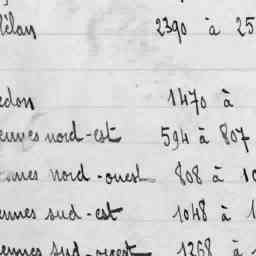 élan 2390 à 25
edon 1470 à
ennes nord-est 594 à 807
ennes nord-ouest 808 à 10
ennes sud-est 1048 à 1
ennes sud-ouest 1268 à